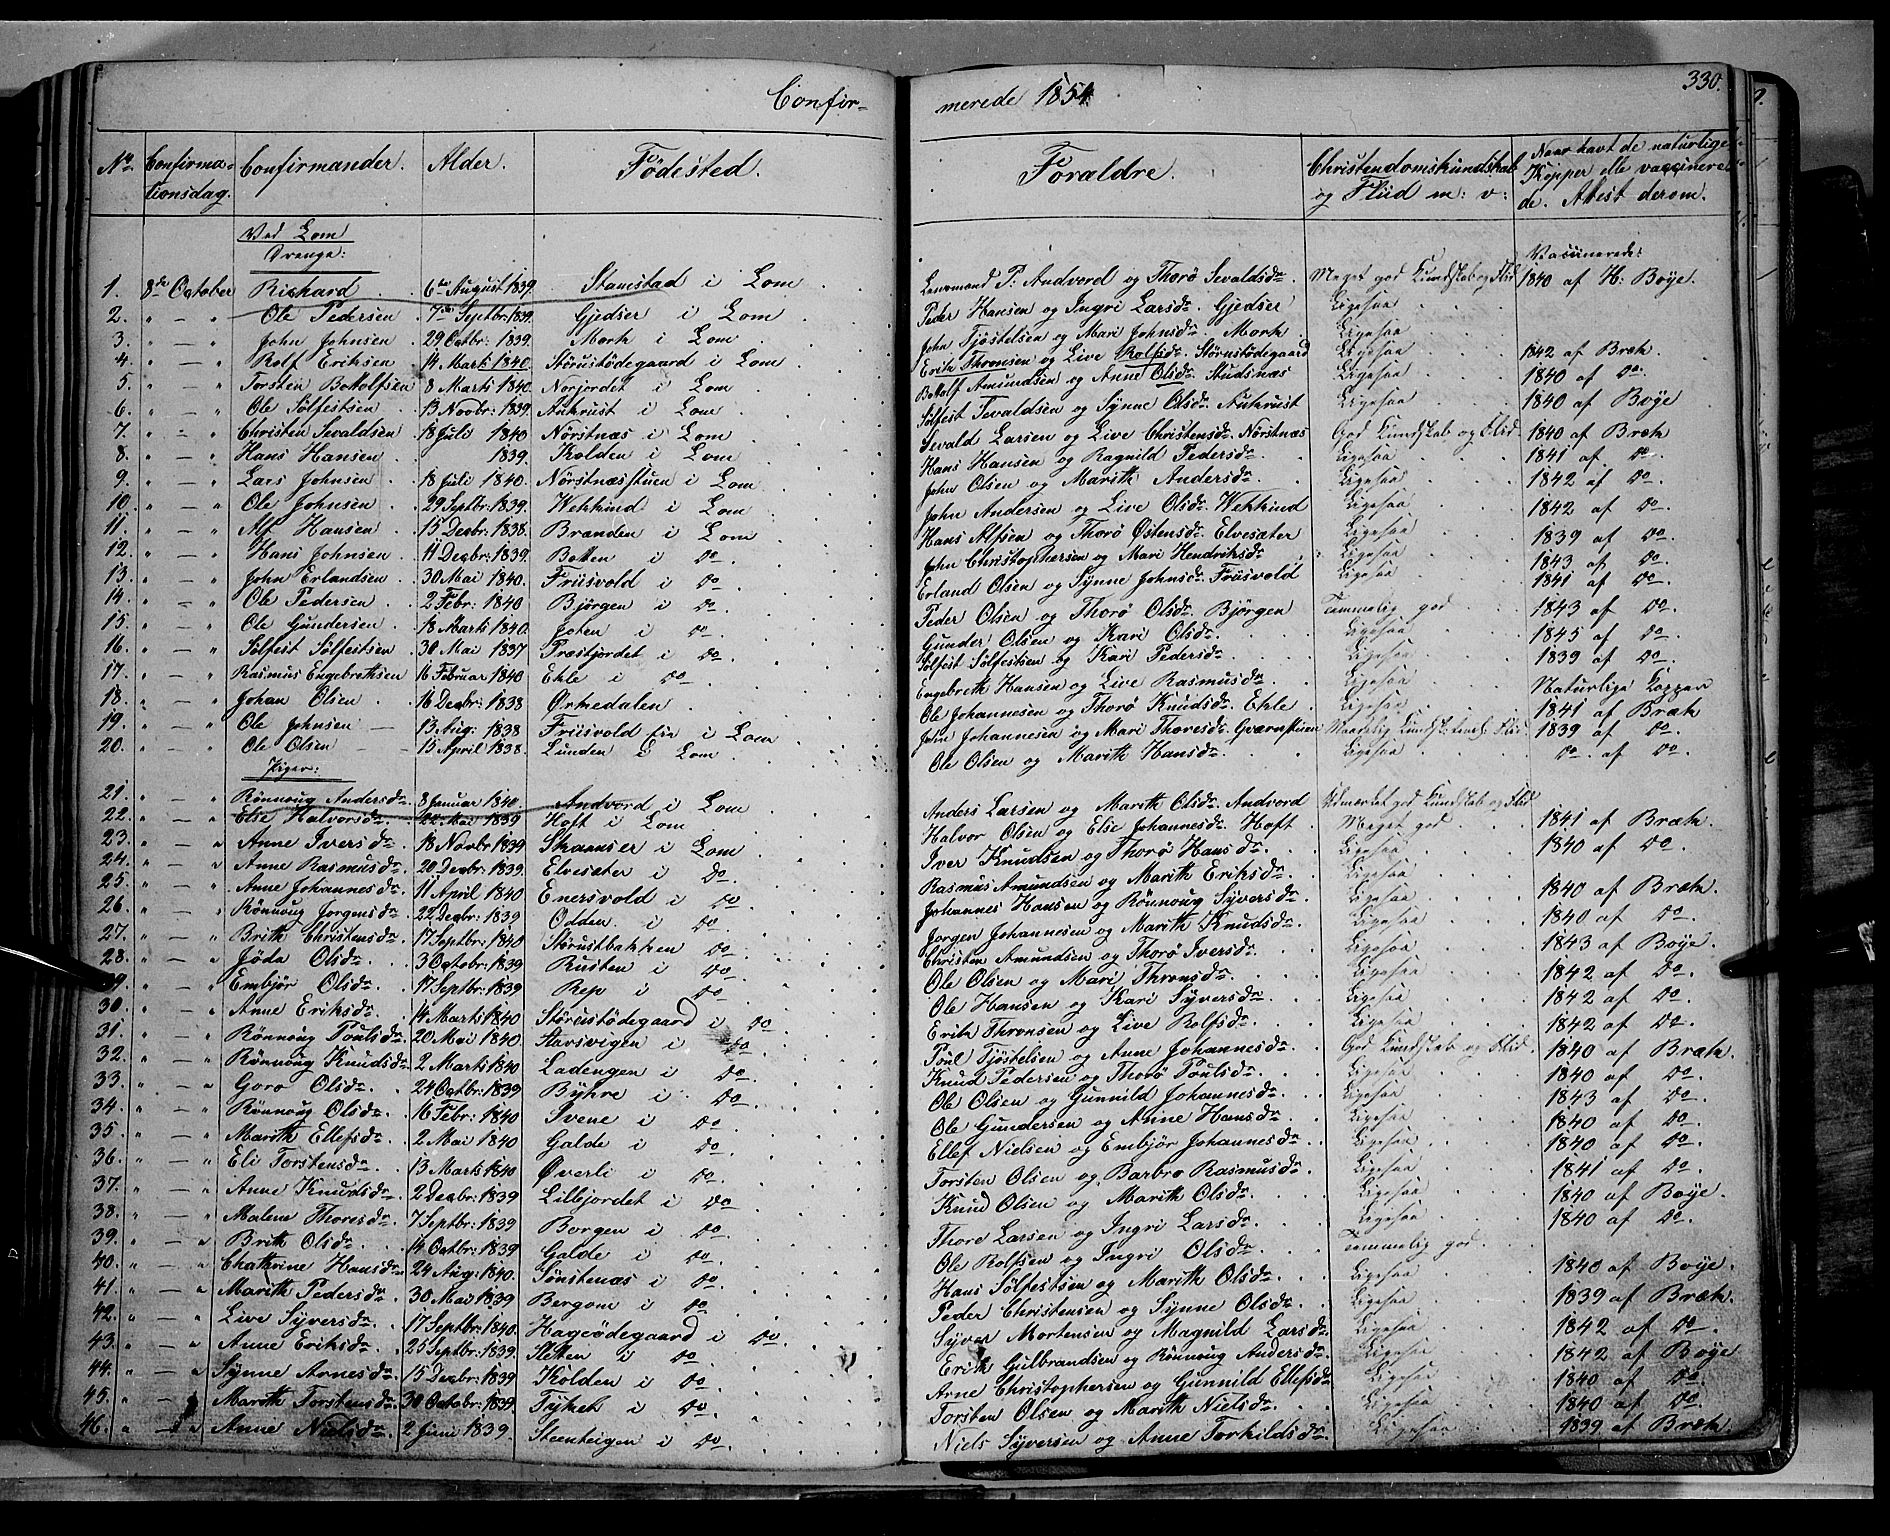 Confir-
merede 1854.
330.
No. Confirma-tionsdag. Confirmander. Alder. Fødested. Forældre. Christendomskundskab og Fliid m: v: Naar havt de naturlige Kopper elle vaccinerede. Attest derom.
Ved Lom
Drenge:
Vaccinerede:
1. 8de October Richard 6te August 1839 Stamstad i Lom Lensmand P: Andvord og Thorø Sevaldsdr Meget god Kundskab og Flid 1840 af H: Boye.
2. " — " Ole Pedersen 7de Septbr: 1839. Gjedser i Lom Peder Hansen og Ingri Larsdr. Gjedser Ligesaa
3. " — " John Johnsen 29 Octbr: 1839. Mork i Lom John Tjøstelsen og Mari Johnsdr. Mork Ligesaa
4. " — " Rolf Eriksen 14 Marts 1840. Størustødegaard i Lom Erik Thronsen og Live Rolfsdr. Størustødegaard Ligesaa 1842 af Bræk.
5. " — " Torsten Botolfsen 8 Marts 1840. Norjordet i Lom Botolf Amundsen og Anne Olsdr. Studsnæs Ligesaa 1840 af Do.
6. " — " Ole Sølfestsen 13 Novbr: 1839. Aukrust i Lom Sølfest Sevaldsen og Synne Olsdr. Aukrust Ligesaa 1840 af Boye
7. " — " Christen Sevaldsen 18 Juli 1840 Nørstnæs i Lom Sevald Larsen og Live Christensdr. Nørstnæs God Kundskab og Flid 1840 af Bræk
8. " — " Hans Hansen 1839. Kolden i Lom Hans Hansen og Ragnild Pedersdr Ligesaa 1841 af Do.
9. " — " Lars Johnsen 18 Juli 1840. Nørstnæsstuen i Lom John Olsen og Marith Andersdr. Ligesaa 1842 af Do
10. " — " Ole Johnsen 29 Septbr: 1839. Wekkind i Lom John Andersen og Live Olsdr. Wekkind Ligesaa 1842 af Do.
11. " — " Alf Hansen 15 Decbr: 1838. Branden i Lom Hans Alfsen og Thorø Østensdr. Elvesæter Ligesaa 1839 af Do.
12. " — " Hans Johnsen 11 Decbr: 1839. Botten i Do John Christophersen og Mari Hendriksdr Ligesaa 1843 af Do.
13. " — " John Erlandsen 30 Mai 1840. Friisvold i Do Erland Olsen og Synne Johnsdr. Friisvold Ligesaa 1841 af Do.
14. " — " Ole Pedersen 2 Febr: 1840 Bjørgen i Do Peder Olsen og Thorø Olsdr. Bjørgen Temmelig god 1843 af Do.
15. " — " Ole Gundersen 18 Marts 1840. Joten i Do. Gunder Olsen og Kari Olsdr. Ligesaa 1845 af Do.
16. " — " Sølfest Sølfestsen 30 Mai 1837 Præstjordet i Do. Sølfest Sølfestsen og Kari Pedersdr. Ligesaa 1839 af Do.
17. " — " Rasmus Engebrethsen 16 Februar 1840 Ekle i Do Engebreth Hansen og Live Rasmusdr Ligesaa Naturlige Kopper
18. " — " Johan Olsen 16 Decbr: 1838 Ørnedalen Ole Johannesen og Thorø Knudsdr. Ekle Ligesaa 1841 af Bræk
19. " — " Ole Johnsen 13 Aug: 1838 Friisvold i Lom John Johannesen og Mari Thoresdr. Qværnstuen 1839 af Do.
20. " — " Ole Olsen 15 April 1838. Lunden i Lom Ole Olsen og Marith Hansdr. Ligesaa Do. af Do.
Piger:
21. " — " Rønnoug Andersdr 8 Januar 1840. Andvord i Lom Anders Larsen og Marith Olsdr. Andvord Udmærket god Kundskab og Flid
22. " — " Else Halvorsdr 22 Mai 1839 Hoft i Lom Halvor Olsen og Else Johannesdr. Hoft Meget god 1841 af Bræk
23. " — " Anne Iversdr 18 Novbr 1839 Skamser i Lom Iver Knudsen og Thorø Hansdr. Ligesaa 1840 af Do.
24. " — " Anne Rasmusdr 20 Decbr: 1839. Elvesæter i Do. Rasmus Amundsen og Marith Eriksdr. Ligesaa
25. " — " Anne Johannesdr 11 April 1840 Enersvold i Do. Johannes Hansen og Rønnoug Syversdr. Ligesaa 1840 af Bræk.
26. " — " Rønnoug Jorgensdr 22 Decbr: 1839 Odden i Do. Jorgen Johannesen og Marith Knudsdr. Ligesaa 1840 af Do
27. " — " Brith Christensdr. 17 Septbr: 1840 Størustbakken Do Christen Amundsen og Thorø Iversdr. Ligesaa 1843 af Boye.
28. " — " Jøda Olsdr. 3 Octobr: 1839 Rusten i Do Ole Olsen og Mari Thronsdr. Ligesaa 1842 af Do.
29. " — " Embjør Olsdr 17 Septbr: 1839 Rep i Do. Ole Hansen og Kari Syversdr. Ligesaa 1842 af Do.
30. " — " Anne Eriksdr. 14 Marts 1840 Størustødegaard i Do Erik Thronsen og Live Rolfsdr. Ligesaa 1842 af Do.
31. " — " Rønnoug Poulsdr 20 Mai 1840 Storsvigen i Do. Poul Tjøstelsen og Anne Johannesdr. God Kundskab og Flid 1840 af Bræk.
32. " — " Rønnoug Knudsdr 2 Marts 1840 Ladengen i Do. Knud Pedersen og Thorø Poulsdr. Ligesaa 1840 af Do.
33. " — " Goro Olsdr. 24 Octbr: 1839 Byhre i Do. Ole Olsen og Gunnild Johannesdr. Ligesaa 1843 af Do.
34. " — " Rønnoug Olsdr. 16 Febr: 1840 Svene i Do Ole Gundersen og Anne Hansdr. Ligesaa 1840 af Do.
35. " — " Marith Ellefsdr. 2 Mai 1840 Galde i Do. Ellef Nielsen og Embjør Johannesdr Ligesaa 1840 af Do.
36. " — " Eli Torstensdr 13 Marts 1840 Øverli i Do. Torsten Olsen og Barbro Rasmusdr Ligesaa 1841 af Do
37. " — " Anne Knudsdr 2 Decbr: 1839 Lillejordet i Do Knud Olsen og Marith Olsdr. Ligesaa 1840 af Boye.
38. " — " Malene Thoresdr 7 Septbr: 1839 Borgen i Do. Thore Larsen og Ingri Larsdr Ligesaa 1840 af Do.
39. " — " Brith Olsdr. 14 Octbr: 1839 Galde i Do. Ole Rolfsen og Ingri Olsdr Temmelig god
40. " — " Chathrine Hansdr 24 Aug: 1840. Sønstenæs i Do. Hans Sølfestsen og Marith Olsdr. Ligesaa 1840 af Boye.
41. " — " Marith Pedersdr 30 Mai 1839 Bergom i Do Peder Christensen og Synne Olsdr. Ligesaa 1839 af Bræk.
42. " — " Live Syversdr. 17 Septbr: 1840. Hageødegaard i Do. Syver Mortensen og Magnild Larsdr. Ligesaa 1842 af Do.
43. " — " Anne Eriksdr. 25 Septbr: 1839. Sletten i Do Erik Gulbrandsen og Rønnoug Andersdr. Ligesaa 1842 af Boye
44. " — " Synne Arnesdr. 15 Decbr: 1839 Kolden i Do. Arne Christophersen og Gunnild Ellefsdr Ligesaa 1840 af Do.
45. " — " Marith Torstensdr 30 Octobr: 1839. Tyket i Do. Torsten Olsen og Marith Nielsdr. Ligesaa 1840 af Do
46. " — " Anne Nielsdr. 2 Juni 1839. Steenteigen i Do. Niels Syversen og Anne Torkildsdr. Ligesaa 1839 af Bræk.